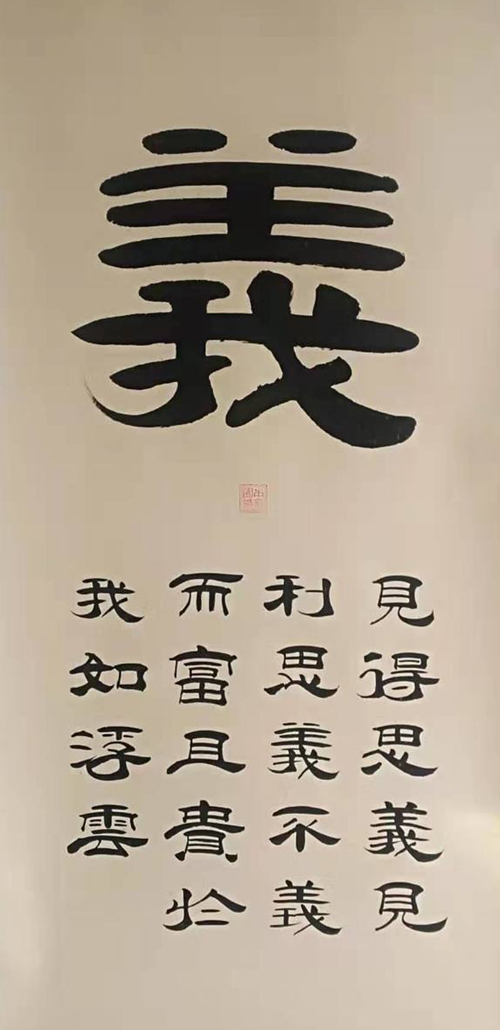 義
見得思義見
利思義不義
而富且貴於
我如浮雲